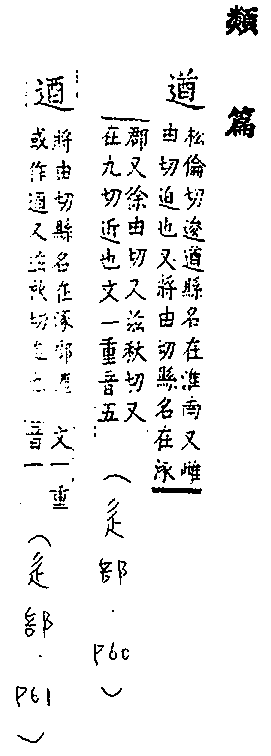 類篇
遒
松倫切逡遒縣名在淮南又雌
由切迫也又將由切縣名在涿
郡又徐由切又茲秋切又
在九切近也文一重音五
(辵部.P60)
逎
將由切縣名在涿郡
或作遒又茲秋切 文一重
音一
(辵部.P61)